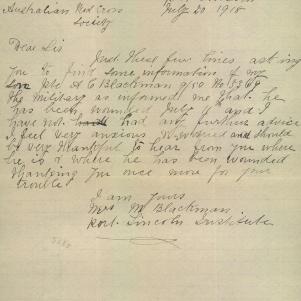 Australian Red Cross July 20 1918
Society
Dear Sir
Just these few lines asking
you to find some information of my
son Pte A C Blackman 9/50
the Military as informed me that he
has been wounded July 11 and I
have not had any further advice
I feel very anxious and should
be very thankful to hear from you where
he is & where he has been wounded
thanking you once more for your
trouble
I am yours
Mrs M Blackman
Port Lincoln Institute